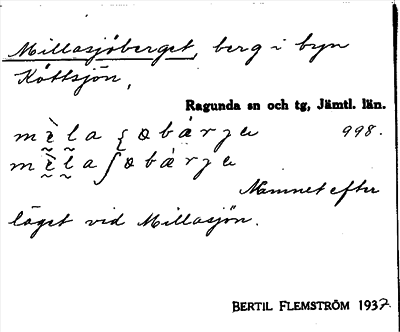 Millasjöberget, berg i byn
Köttsjön,
Ragunda sn och tg, Jämtl. län.
998.
Namnet efter
läget vid Millasjön.
BERTIL FLEMSTRÖM 1937